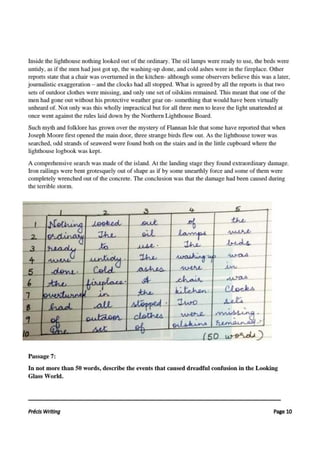 Inside the lighthouse nothing looked out of the ordinary. The oil lamps were ready to use, the beds were
untidy, as if the men had just got up, the washing-up done, and cold ashes were in the fireplace. Other
reports state that a chair was overturned in the kitchen- although some observers believe this was a later,
journalistic exaggeration – and the clocks had all stopped. What is agreed by all the reports is that two
sets of outdoor clothes were missing, and only one set of oilskins remained. This meant that one of the
men had gone out without his protective weather gear on- something that would have been virtually
unheard of. Not only was this wholly impractical but for all three men to leave the light unattended at
once went against the rules laid down by the Northern Lighthouse Board.
Such myth and folklore has grown over the mystery of Flannan Isle that some have reported that when
Joseph Moore first opened the main door, three strange birds flew out. As the lighthouse tower was
searched, odd strands of seaweed were found both on the stairs and in the little cupboard where the
lighthouse logbook was kept.
A comprehensive search was made of the island. At the landing stage they found extraordinary damage.
Iron railings were bent grotesquely out of shape as if by some unearthly force and some of them were
completely wrenched out of the concrete. The conclusion was that the damage had been caused during
the terrible storm.
1 2 3 4 5
1 Nothing looked out of the
2 ordinary. The oil lamps were
3 ready to use. The beds
4 were untidy. The washing up was
5 done. Cold ashes were in
6 the fireplace. A chair was
7 overturned in the kitchen. Clocks
8 had all stopped. Two sets
9 of outdoor clothes were missing.
10 One set of oilskins remained.
(50 words)
Passage 7:
In not more than 50 words, describe the events that caused dreadful confusion in the Looking
Glass World.
Précis Writing Page 10